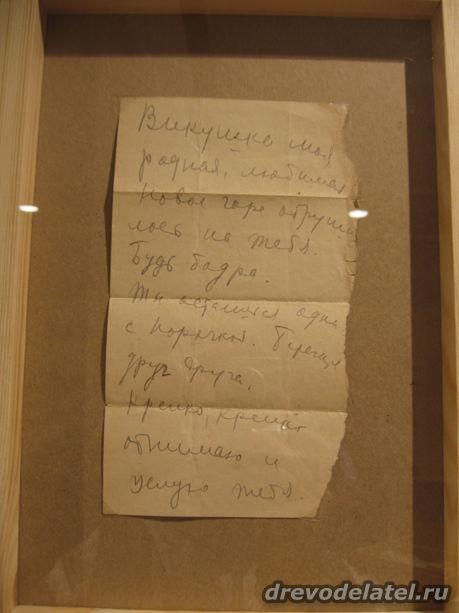 Викушка моя
родная, любимая
Новое горе обруши
лось на тебя.
Будь бодра.
Ты остаешься одна
с Корочкой. Берегите
друг друга.
Крепко, крепко
обнимаю и
целую тебя.
drevodelatel.ru